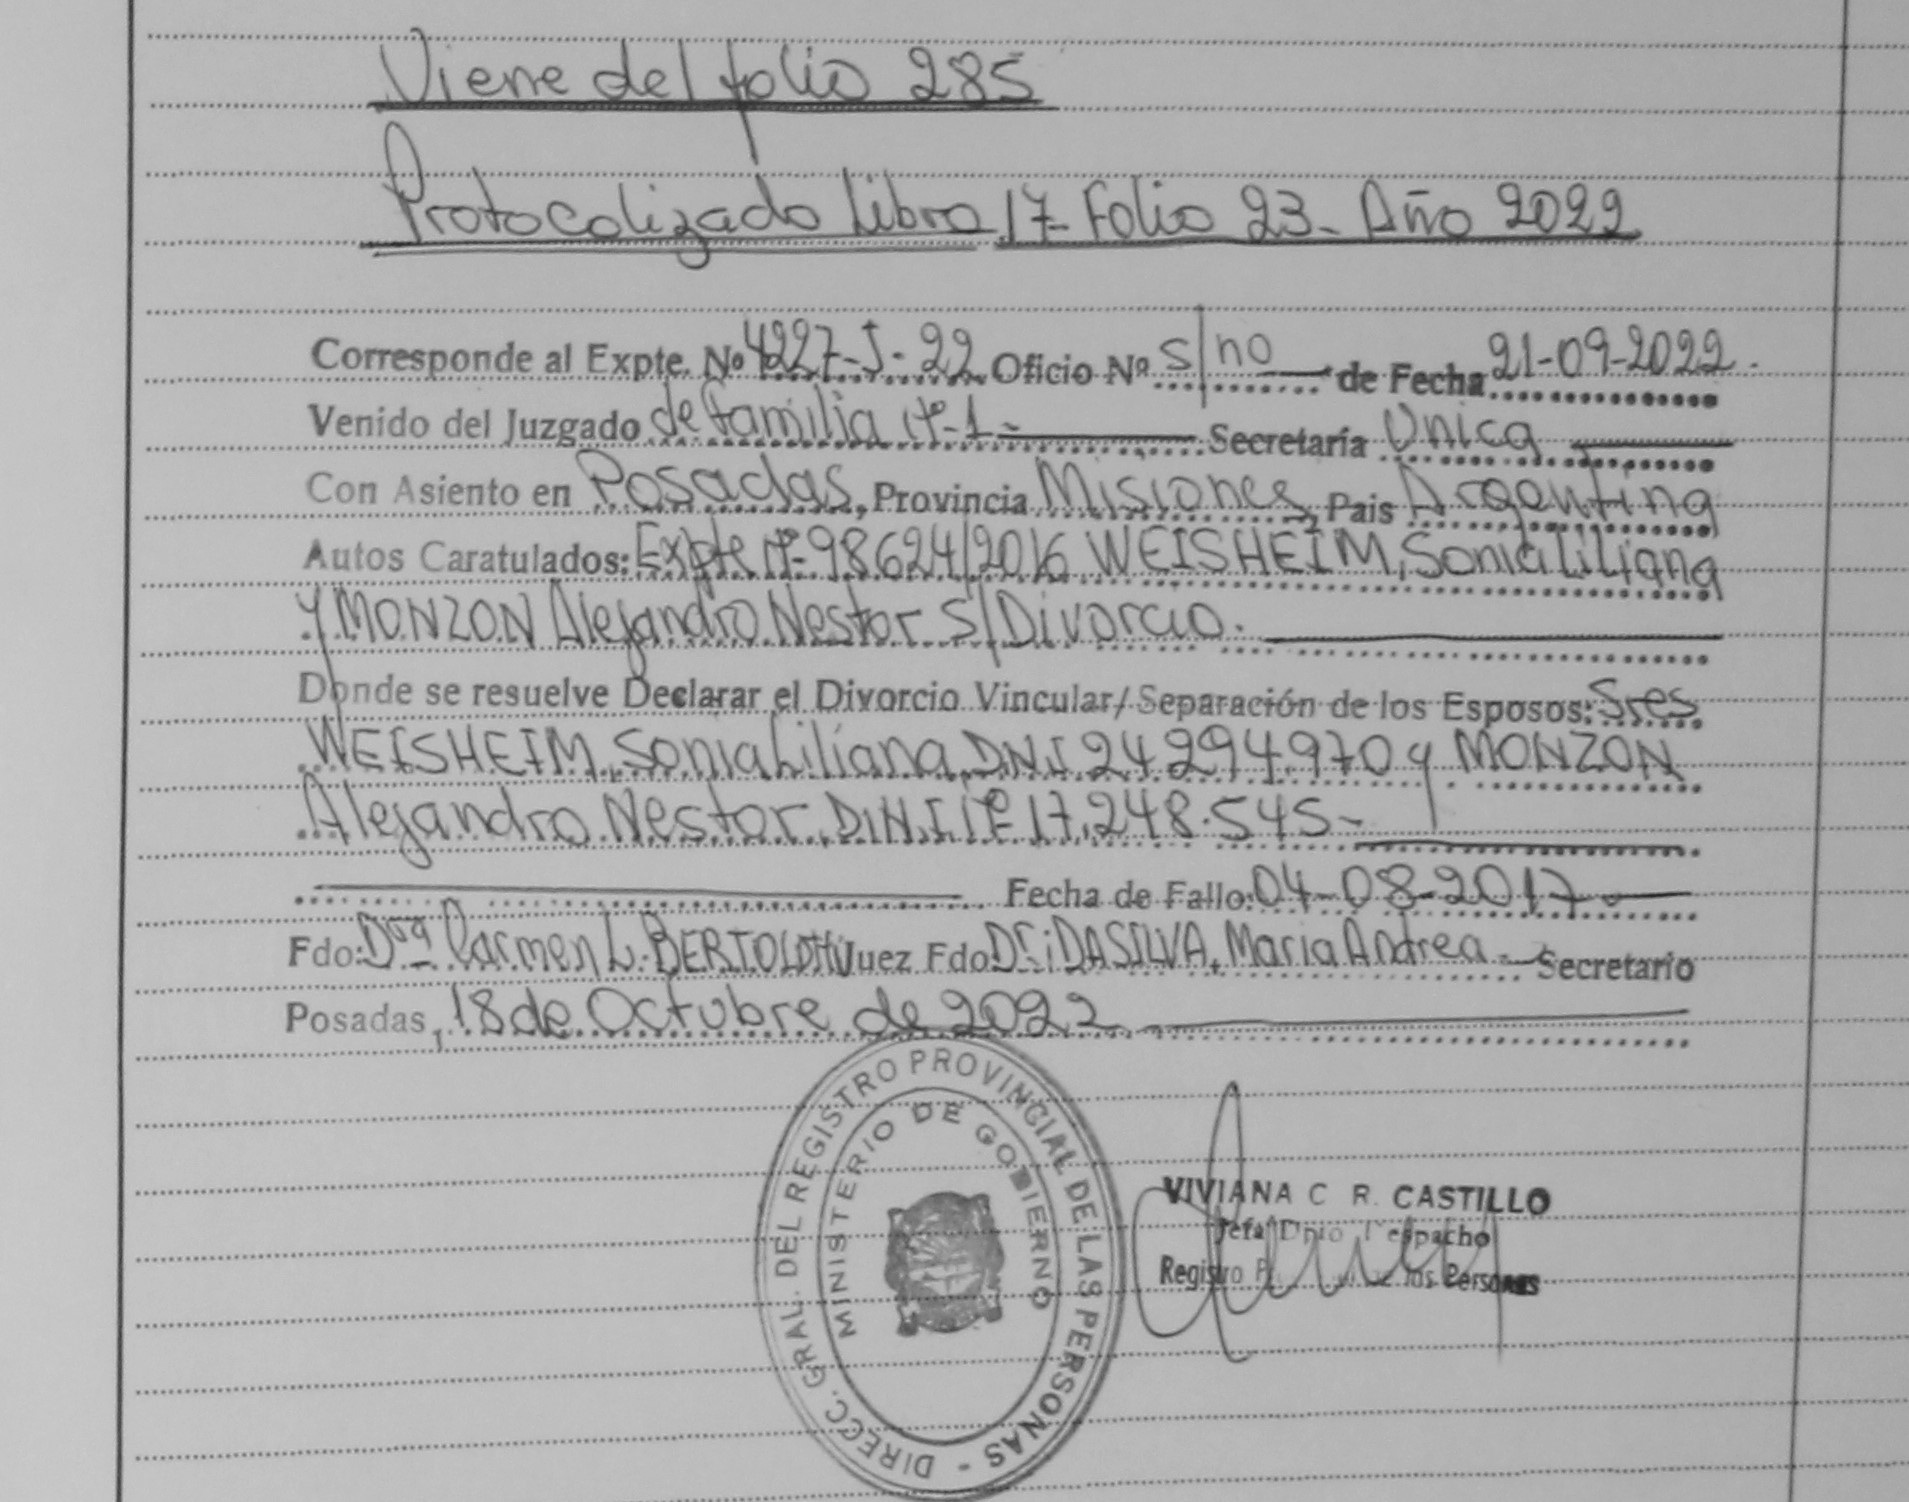 Viene del folio 285
Protocolizado Libro 17- Folio 23- Año 2022
Corresponde al Expte. Nº 4227-J-22 Oficio Nº s/no de Fecha 21-09-2022.
Venido del Juzgado de familia Nº 1- Secretaría Unica
Con Asiento en Posadas, Provincia Misiones, Pais Argentina
Autos Caratulados: Expte Nº 98624/2016 WEISHEIM, Sonia Liliana
y MONZON Alejandro Nestor s/Divorcio.
Donde se resuelve Declarar el Divorcio Vincular/Separación de los Esposos: Sres
WEISHEIM, Sonia Liliana D.N.I 24.294.970 y MONZON
Alejandro Nestor, D.N.I Nº 17.248.545-
Fecha de Fallo: 04-08-2017-
Fdo: Dra Carmen L. BERTOLOTTI Juez Fdo Dr: DA SILVA, Maria Andrea - Secretario
Posadas, 18 de Octubre de 2022
DIRECC. GRAL. DEL REGISTRO PROVINCIAL DE LAS PERSONAS -
MINISTERIO DE GOBIERNO
VIVIANA C R. CASTILLO
Jefa Dpto Despacho
Registro las Personas